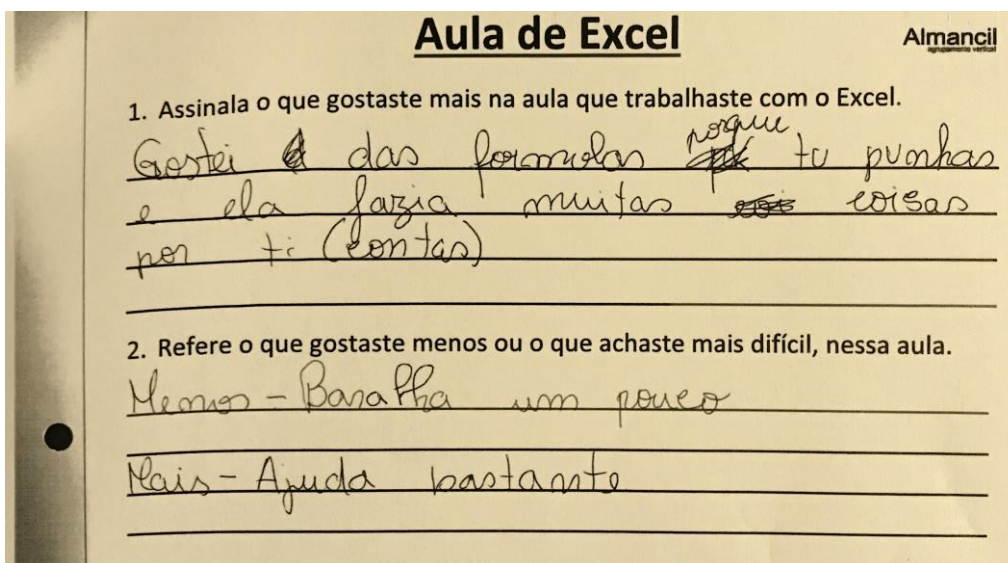 Aula de Excel
Almancil
agrupamento vertical
1. Assinala o que gostaste mais na aula que trabalhaste com o Excel.
Gostei das formulas porque tu punhas
e ela fazia muitas coisas
por ti (contas)
2. Refere o que gostaste menos ou o que achaste mais difícil, nessa aula.
Menos - Baralha um pouco
Mais - Ajuda bastante